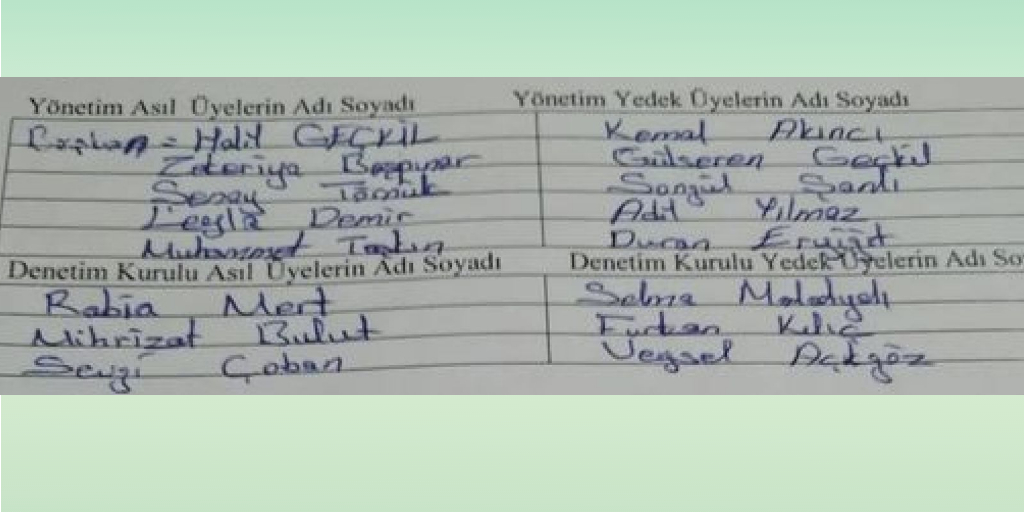 Yönetim Asıl Üyelerin Adı Soyadı
Başkan = Halit GEÇKİL
Zekeriya Başpınar
Şenay Tömük
Leyla Demir
Muhammet Taşkın
Yönetim Yedek Üyelerin Adı Soyadı
Kemal Akıncı
Gülseren Geçkil
Songül Şanlı
Adil Yılmaz
Duran Eryiğit
Denetim Kurulu Asıl Üyelerin Adı Soyadı
Rabia Mert
Mihrizat Bulut
Sevgi Çoban
Denetim Kurulu Yedek Üyelerin Adı So
Selma
Furkan Kılıç
Veysel Açıkgöz